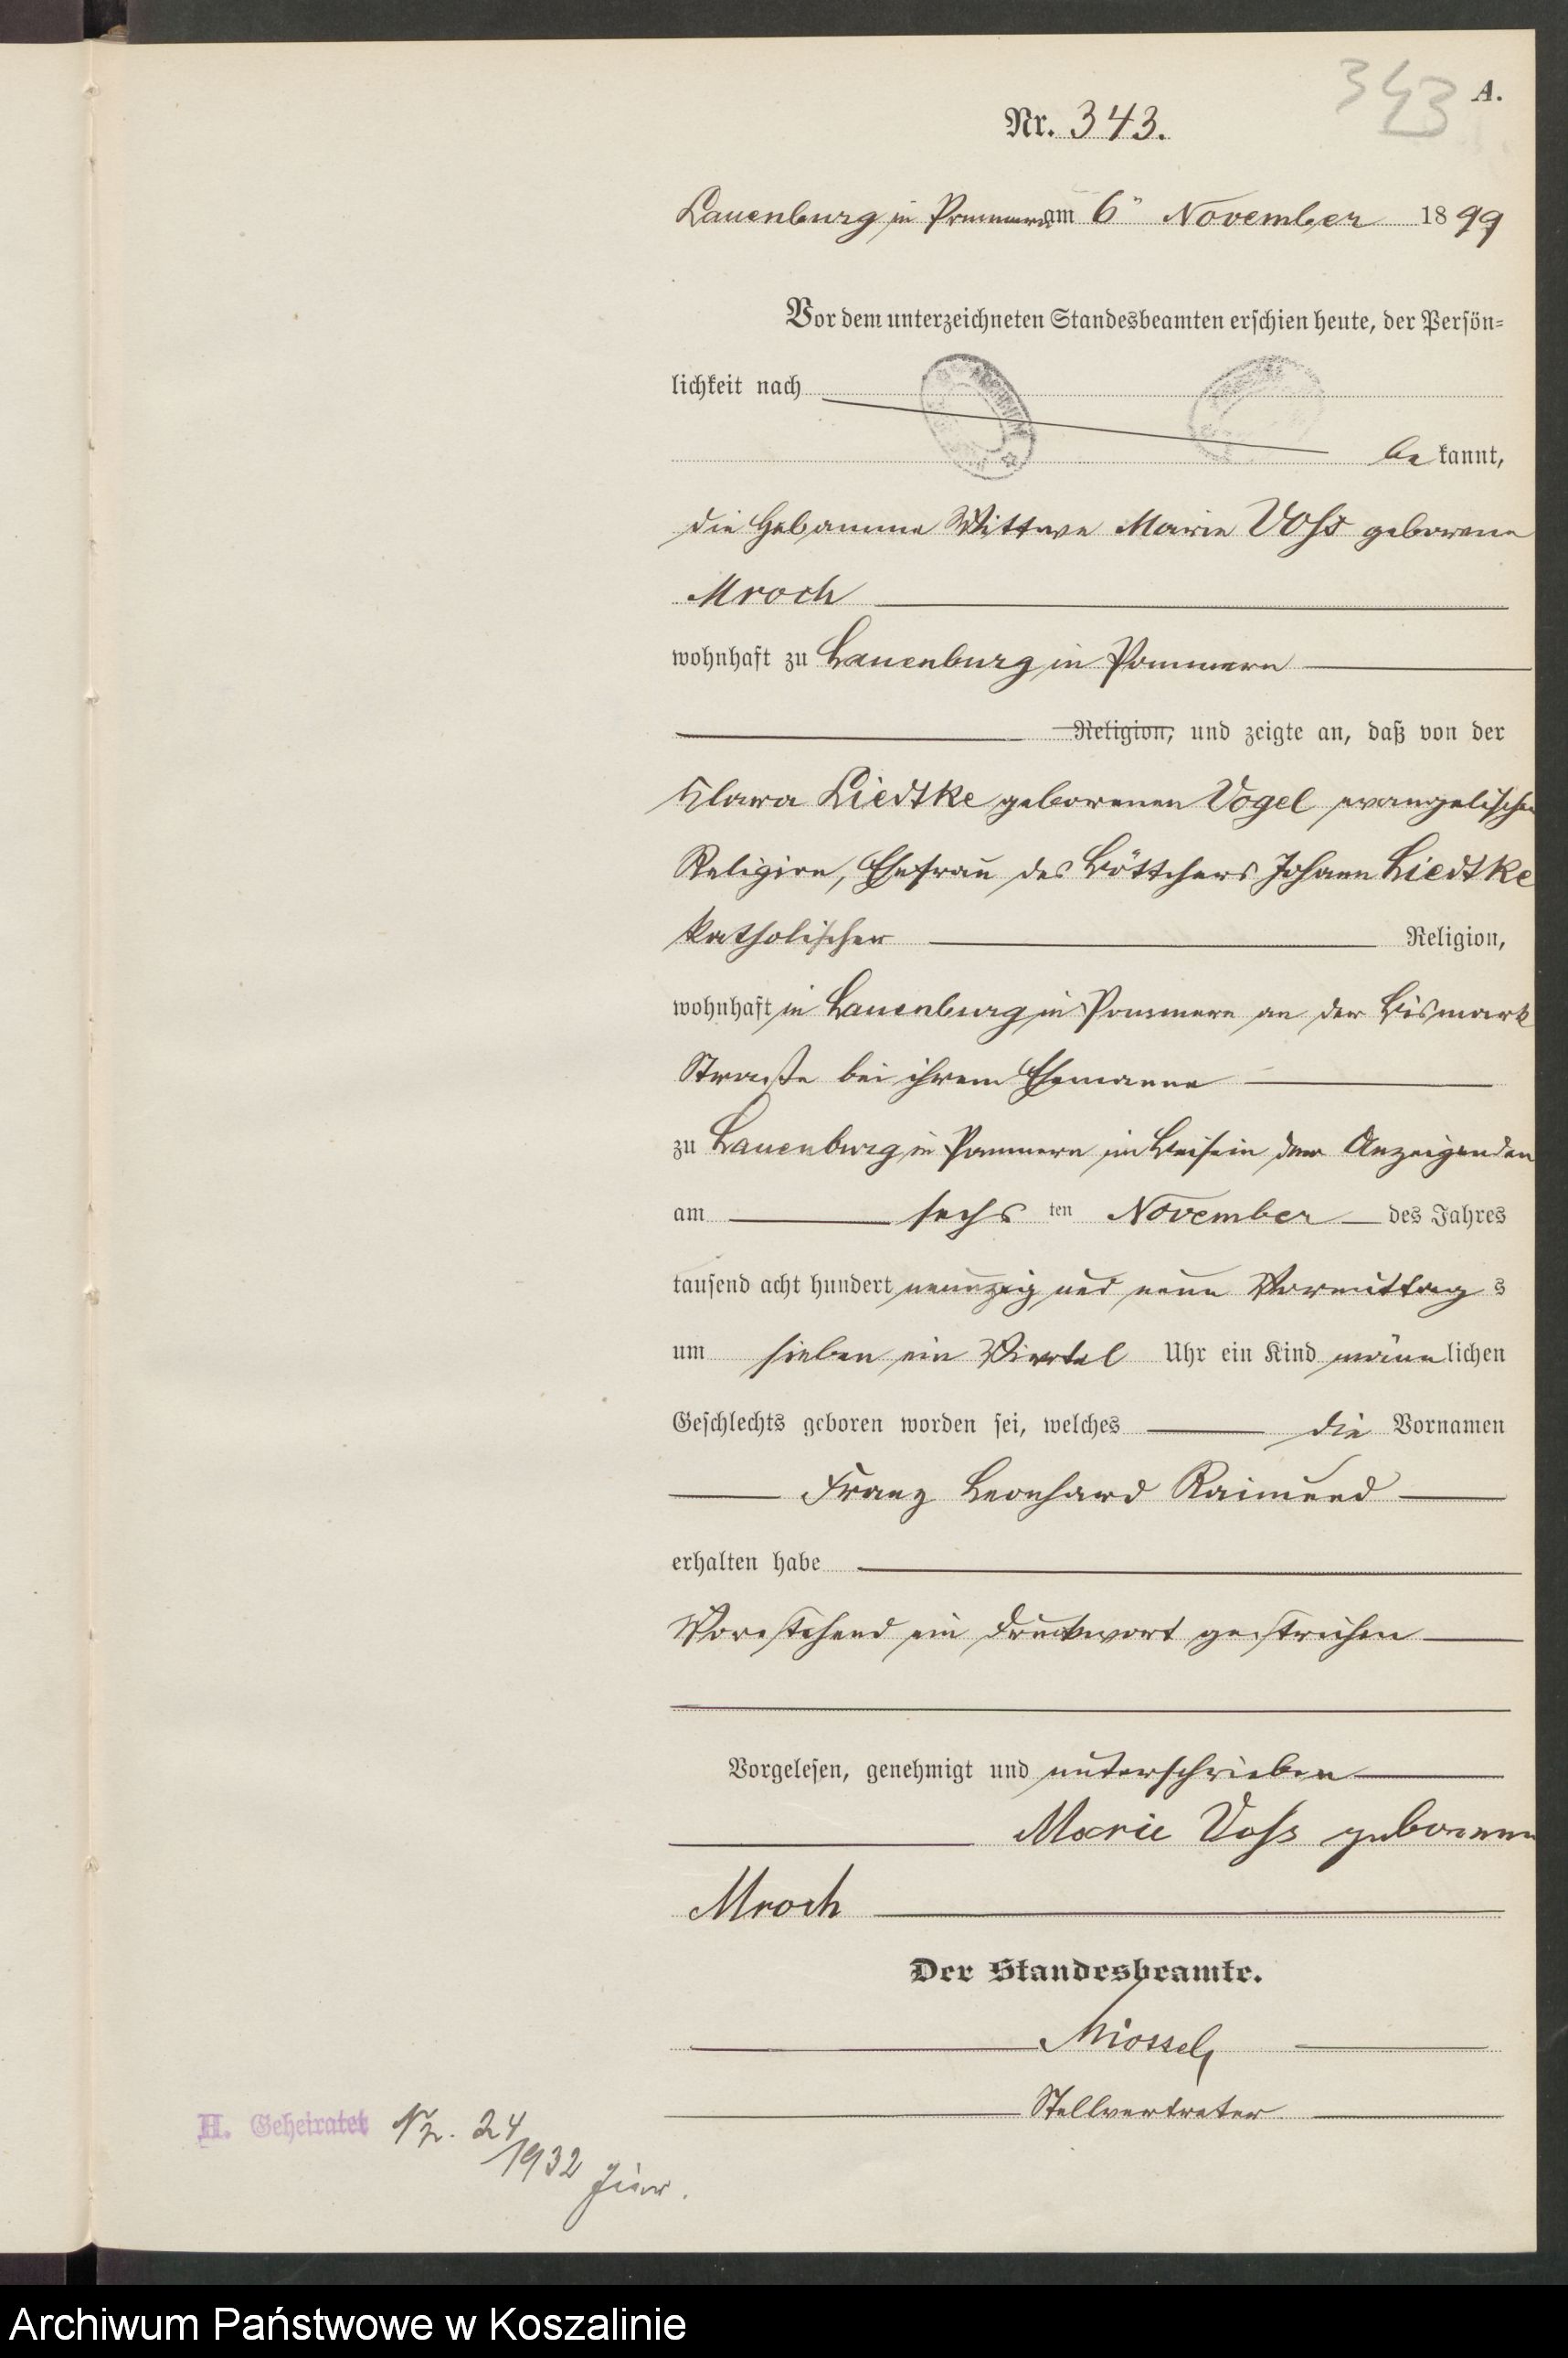 343 A.
Nr. 343.
Lauenburg in Pommern am 6ᵗ November 1899
Vor dem unterzeichneten Standesbeamten erschien heute, der Persön-
lichkeit nach
be kannt,
die Hebamme Wittwe Marie Voß geborene
Mroch
wohnhaft zu Lauenburg in Pommern
Religion, und zeigte an, daß von der
Klara Liedtke geborenen Vogel, evangelischer
Religion, Ehefrau des Böttchers Johann Liedtke
katholischer Religion,
wohnhaft in Lauenburg in Pommern an der Bismark
Straße bei ihrem Ehemanne
zu Lauenburg in Pommern im Beisein der Anzeigenden
am sechs ten November des Jahres
tausend acht hundert neunzig und neun Vormittag s
um sieben ein Viertel Uhr ein Kind männlichen
Geschlechts geboren worden sei, welches die Vornamen
Franz Leonhard Raimund
erhalten habe
Vorstehend ein Druckwort gestrichen
Vorgelesen, genehmigt und unterschrieben
Marie Voß geborenen
Mroch
Der Standesbeamte.
Stellvertreter
H. Geheiratet Nr. 24
1932 hier.
Archiwum Państwowe w Koszalinie